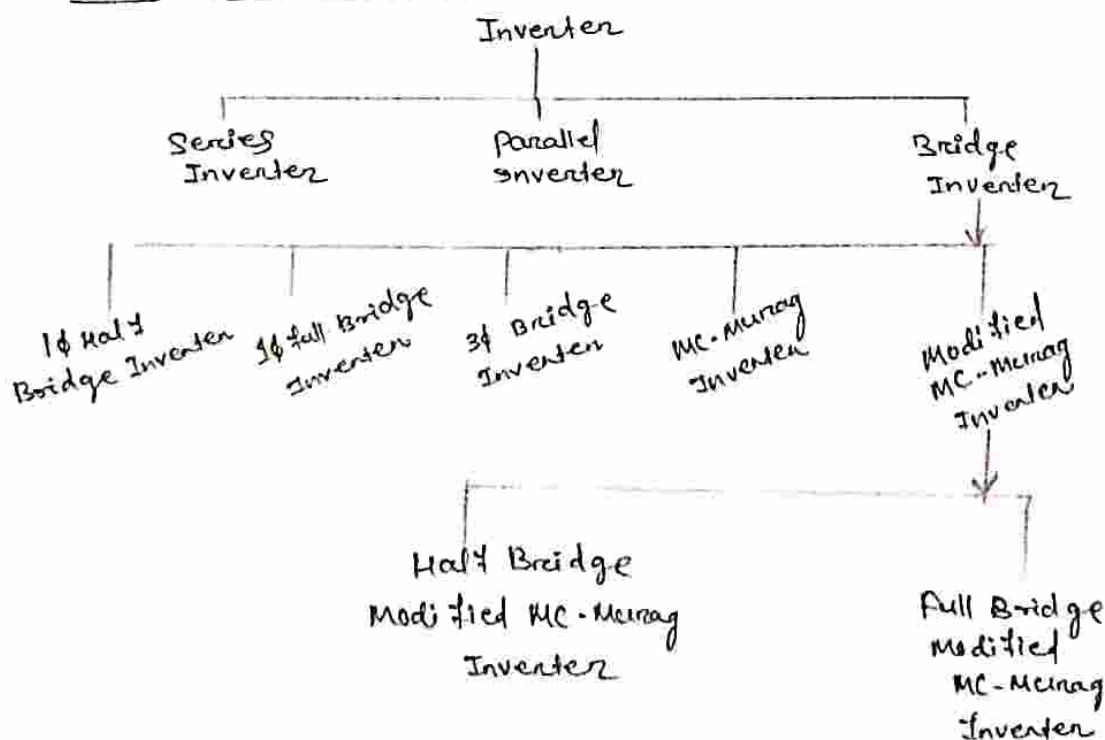 Inverter
Series
Inverter
Parallel
Inverter
Bridge
Inverter
1ϕ Half
Bridge Inverter
1ϕ full Bridge
Inverter
3ϕ Bridge
Inverter
MC-Murray
Inverter
Modified
MC-Murray
Inverter
Half Bridge
Modified MC-Murray
Inverter
Full Bridge
Modified
MC-Murray
Inverter